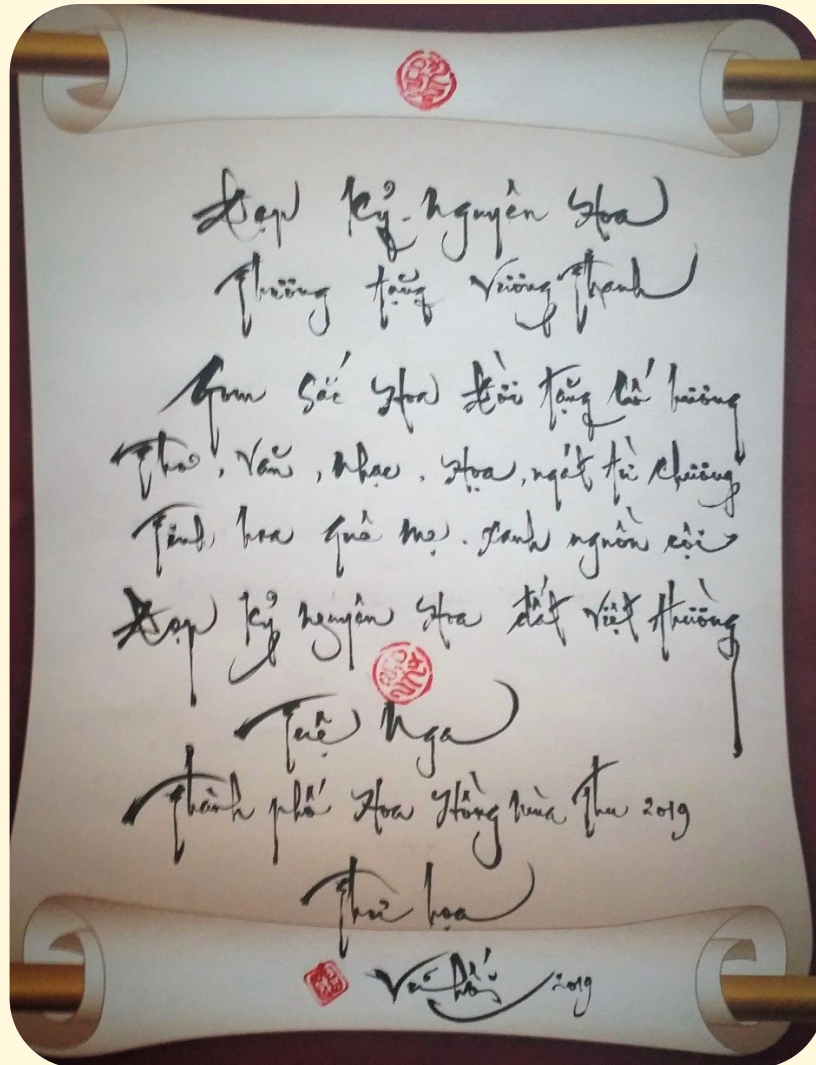 Đẹp Kỷ Nguyên Hoa
Thương tặng Vương Thanh
Gom Sắc Hoa Đời tặng cố hương
Thơ, Văn, Nhạc, Họa, ngát từ chương
Tinh hoa quê mẹ. xanh nguồn cội
Đẹp Kỷ nguyên Hoa đất Việt thường
Tuệ Nga
Thành phố Hoa Hồng mùa Thu 2019
Thư họa
Vũ Hối 2019